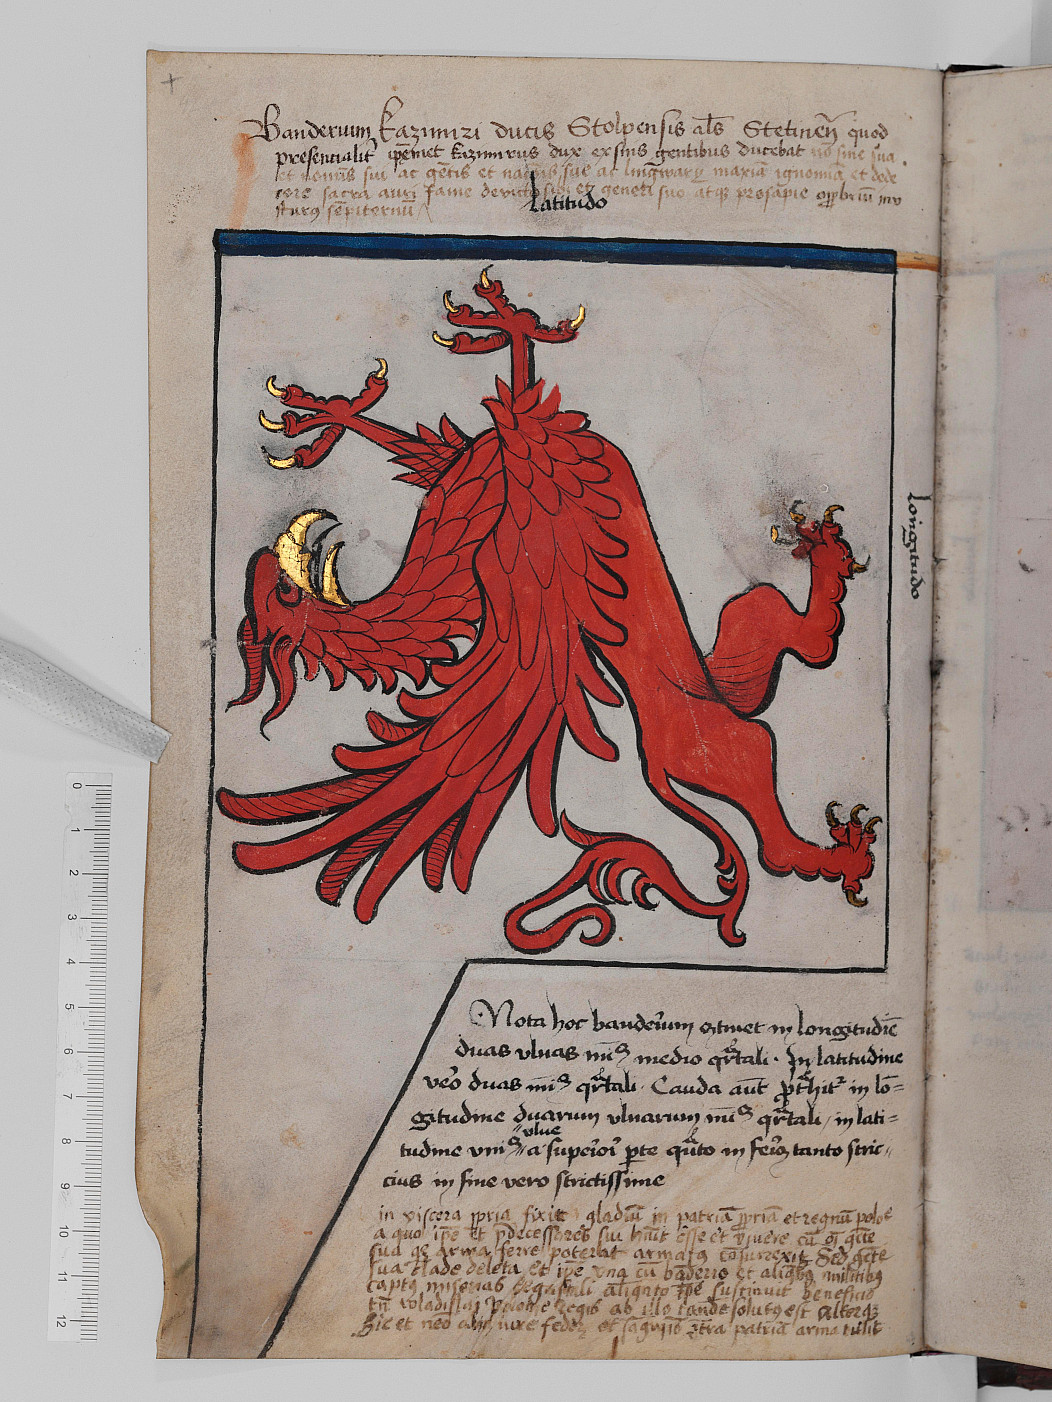 Banderium Kazimiri ducis Stolpensis als Stetinen̄ quod
presencialit' ip̄emet Kazimirus dux ex suis gentibus ducebat nō sine sua
et nominis sui ac gentis et sue ac maxīa ignomīa et dede
core sacra auri fame devicto sibi et generi suo atq̄ prosapie opp̄brium
sturus sempiternū
latitudo
longitudo
Nota hoc banderium ꝯtinet in longitudīe
duas vlnas min9 medio q̄rtali. In latitudine
vero duas min9 q̄rtali. Cauda aūt ꝓt̄hit' in lō=
gitudine duarum vlnarum min9 q̄rtali / in lati=
tudine vni9 vlne a superiori parte q̄nto inferi9 tanto stric=
cius in fine vero strictissime
in viscera ꝓpria fixit gladiū in patriā ꝓpriā et regnū polōe
a quo ip̄e et p̄decessores sui h̄uit esse et vivere cū oī gēte
sua q̄ arma ferre poterat armata Sed gēte
sua clade deleta et ip̄e vna cū bāderio et aliq̄bus militibus
captus miserias aliqn̄to tp̄e sustinuit beneficio
tn̄ wladislai Polonie regis ab illo tande solutus est
Hic et iure federis et sāgwīs ꝯtra patriā arma tulit
0
1
2
3
4
5
6
7
8
9
10
11
12